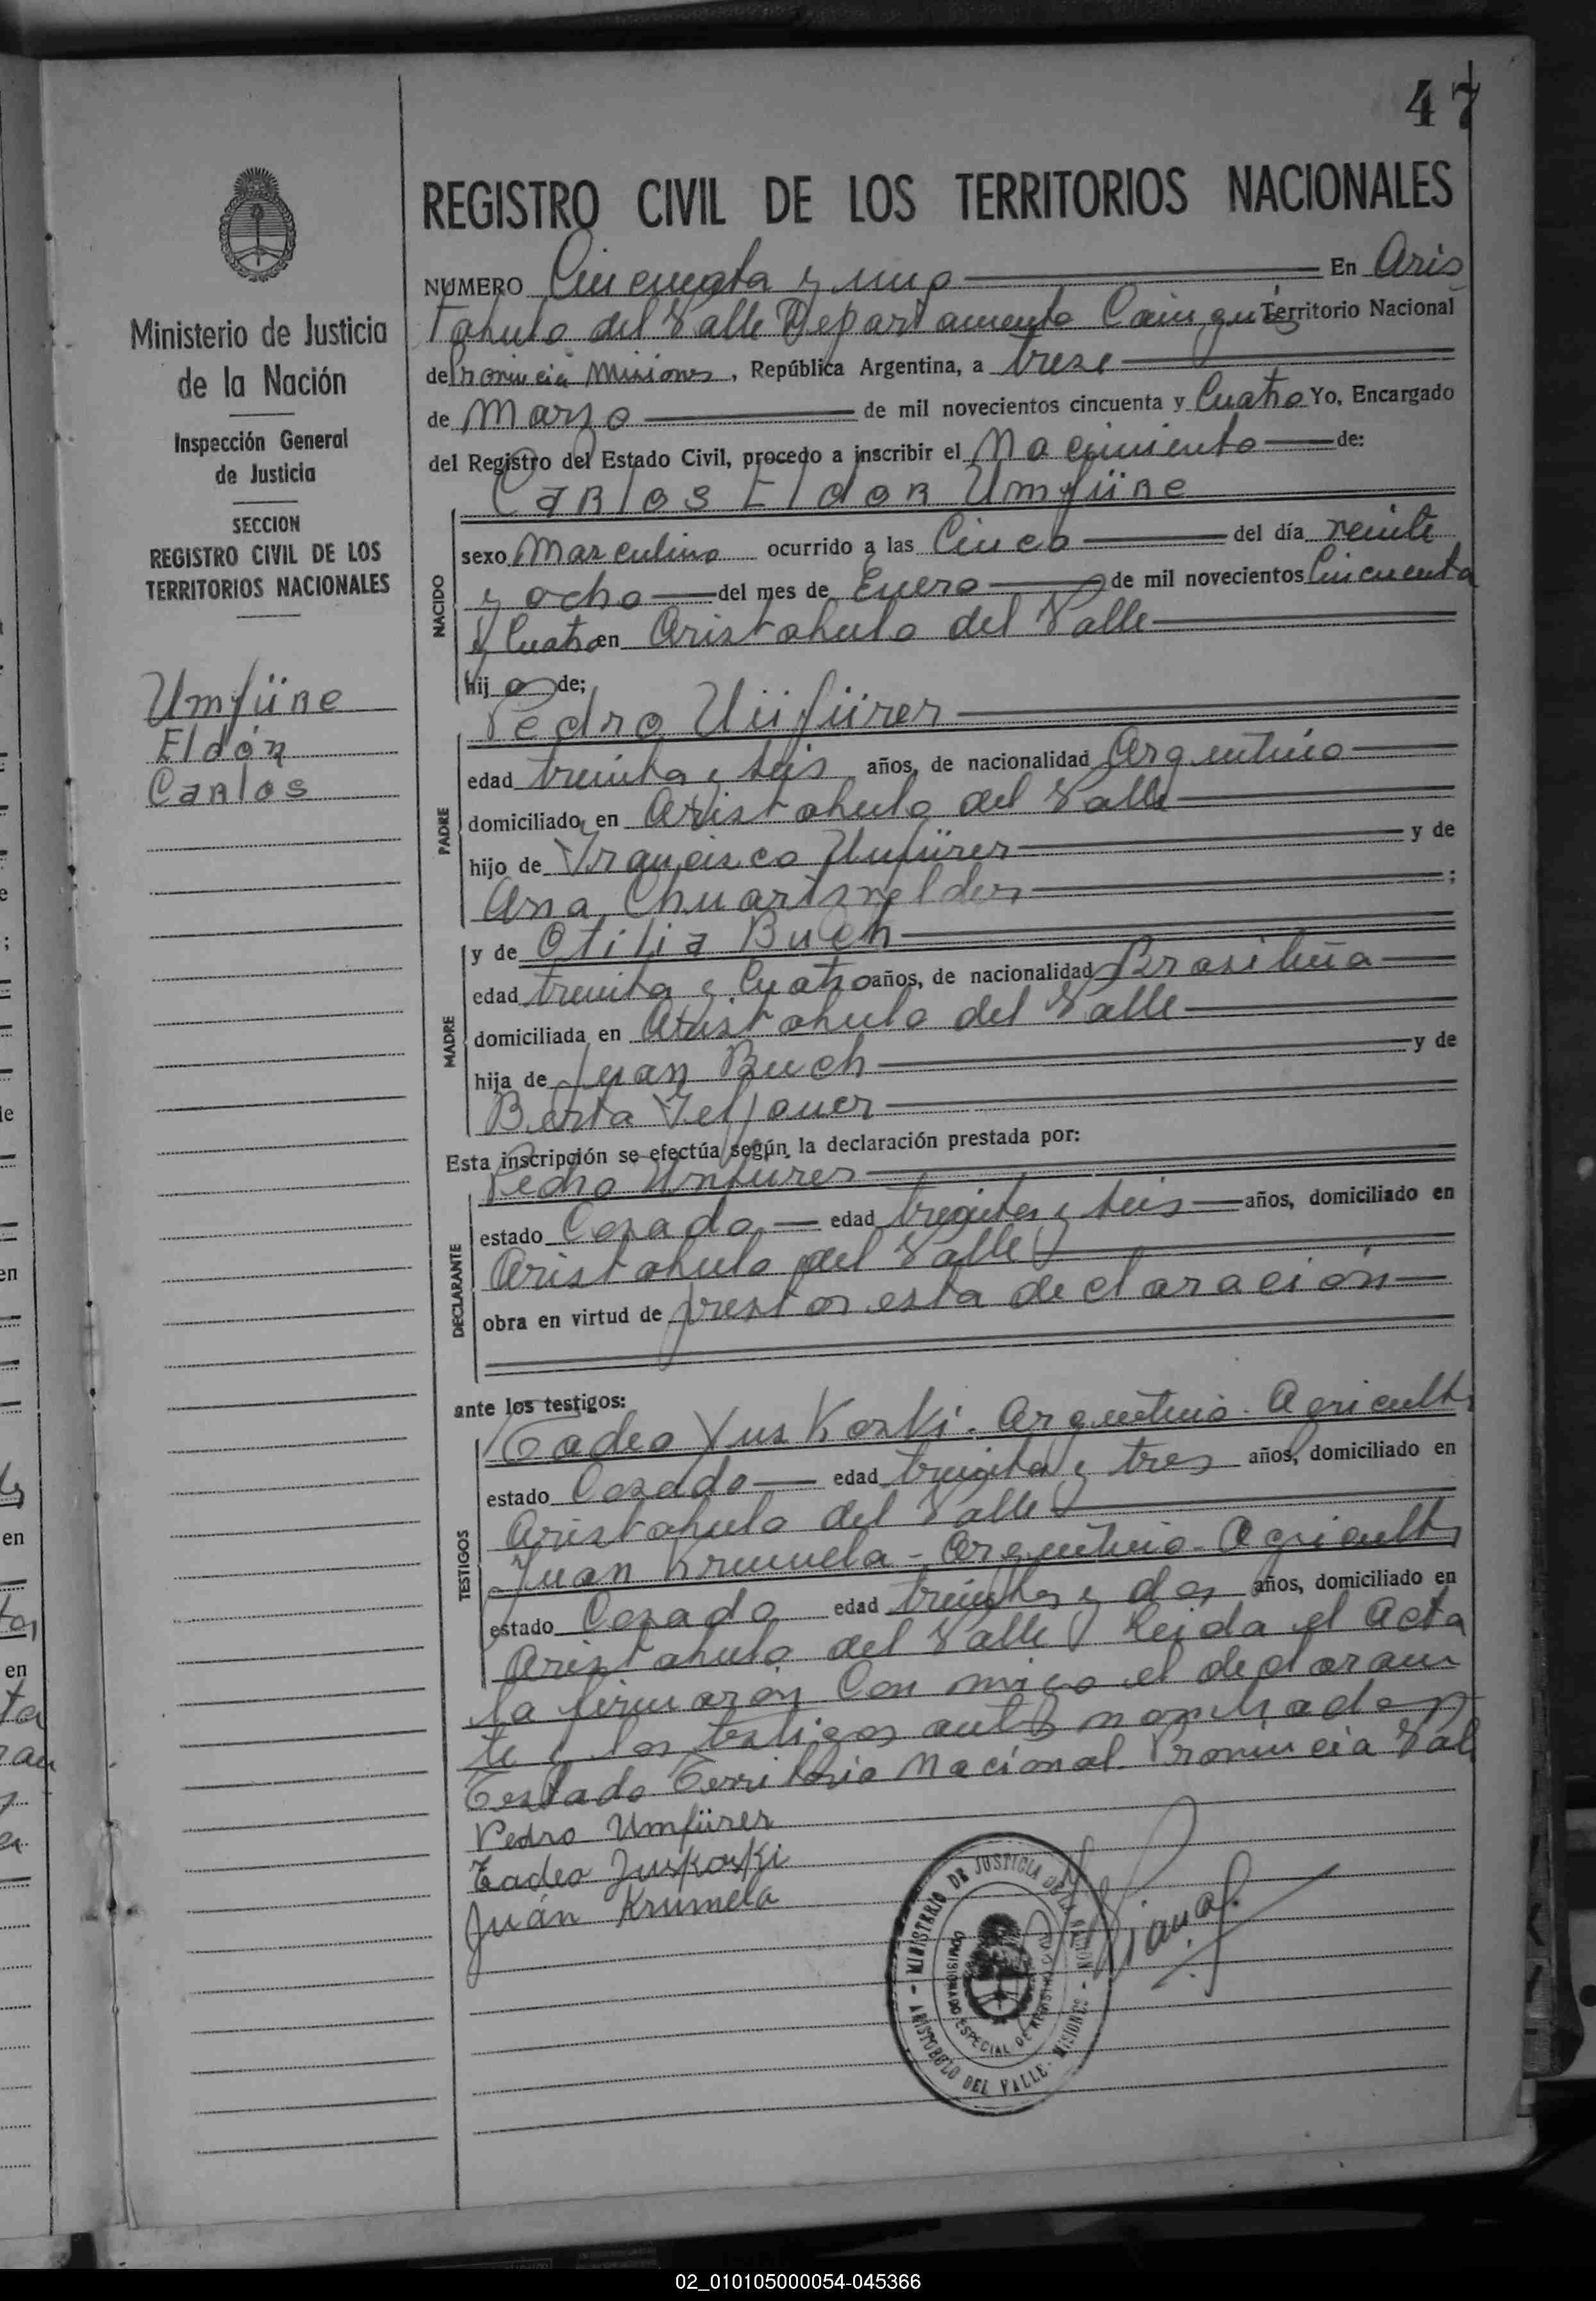 47
REGISTRO CIVIL DE LOS TERRITORIOS NACIONALES
Ministerio de Justicia
de la Nación
Inspección General
de Justicia
SECCION
REGISTRO CIVIL DE LOS
TERRITORIOS NACIONALES
Umfüre
Eldór
Carlos
NUMERO Cincuenta y uno En Aris
tobulo del Valle Departamento Cainguás Territorio Nacional
de Provincia Misiones, República Argentina, a trese
de Marzo de mil novecientos cincuenta y Cuatro Yo, Encargado
del Registro del Estado Civil, procedo a inscribir el Nacimiento de:
Carlos Eldor Umfüre
NACIDO
sexo Masculino ocurrido a las Cinco del día veinte
y ocho del mes de Enero de mil novecientos Cincuenta
y Cuatro en Aristobulo del Valle
hij o de;
Pedro Unfürer
PADRE
edad treinta y seis años, de nacionalidad Argentino
domiciliado en Aristobulo del Valle
hijo de Francisco Unfürer y de
Ana Chuartsnelder ;
y de Otilia Buch
MADRE
edad treinta y Cuatro años, de nacionalidad Brasileña
domiciliada en Aristobulo del Valle
hija de Juan Buch y de
Berta
Esta inscripción se efectúa según la declaración prestada por:
Pedro Unfürer
DECLARANTE
estado Casado edad treinta y seis años, domiciliado en
Aristobulo del Valle
obra en virtud de prestar esta declaración
ante los testigos:
Tadeo Yuskoski. Argentino. Agricult
TESTIGOS
estado Casado edad treinta y tres años, domiciliado en
Aristobulo del Valle
Juan Krumela - Argentino - Agricult
estado Casado edad treinta y dos años, domiciliado en
Aristobulo del Valle Leida el Acta
la firmarón Con migo el declaran
te y los testigos antes nombrados
Testado Territorio Nacional. Provincia Vale
Pedro Umfürer
Tadeo Juskoski
Juán Krumela
MINISTERIO DE JUSTICIA DE LA NACION - MISIONES - ARISTOBULO DEL VALLE
COMISIONADO ESPECIAL DE REGISTRO CIVIL